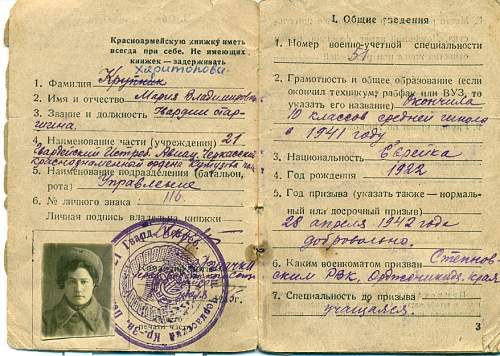 Красноармейскую книжку иметь
всегда при себе. Не имеющих
книжек — задерживать
Харитонова
1. Фамилия Крупник
2. Имя и отчество Мария Владимировна
3. Звание и должность Гвардии стар-
шина.
4. Наименование части (учреждения) 21
Гвардейский Истреб. Авиац. Черкасский
краснознаменный ордена
5. Наименование подразделения (батальон,
рота) Управление
6. № личного знака 116.
Личная подпись владельца книжки
I. Общие сведения
1. Номер военно-учетной специальности
2. Грамотность и общее образование (если
окончил техникум, рабфак или ВУЗ, то
указать его название) Окончила
10 классов средней школы
в 1941 году
3. Национальность Еврейка
4. Год рождения 1922
5. Год призыва (указать также — нормаль-
ный или досрочный призыв)
28 апреля 1942 года
добровольно.
6. Каким военкоматом призван Степнов-
ским РВК, Орджоникидз. края
7. Специальность до призыва
учащаяся.
3